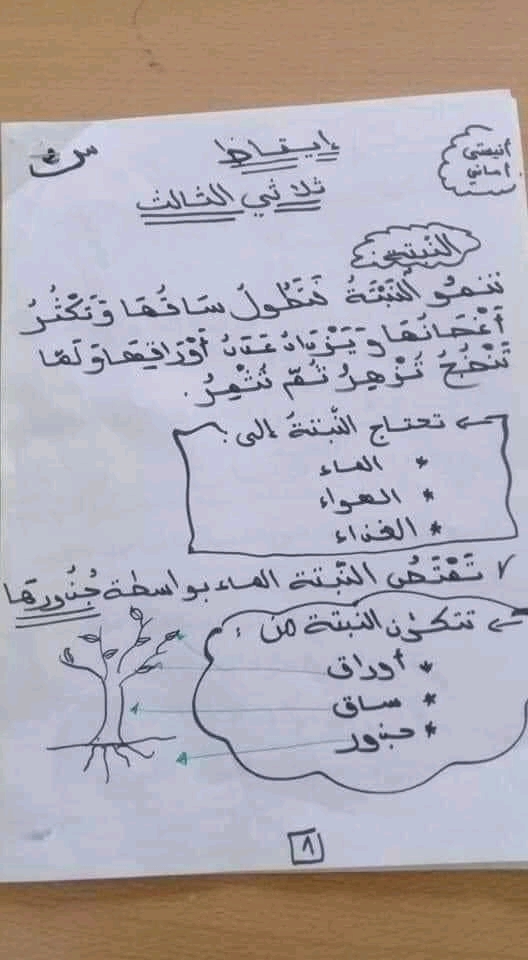 إيقاظ
أنيستي
أماني
ثلاثي الثالث
النبتة
تَنْمُو النَّبْتَةُ فَتَطُولُ سَاقُهَا وَتَكْثُرُ
أَغْصَانُهَا وَيَزْدَادُ عَدَدُ أَوْرَاقِهَا وَلَمَّا
تَنْضُجُ تُزْهِرُ ثُمَّ تُثْمِرُ.
تحتاج النَّبتةُ إلى:
* الماء
* الهواء
* الغذاء
تَمْتَصُّ النَّبتة الماء بواسطة جُذُورِهَا
تتكوّن النبتة من:
* أوراق
* ساق
* جذور
1